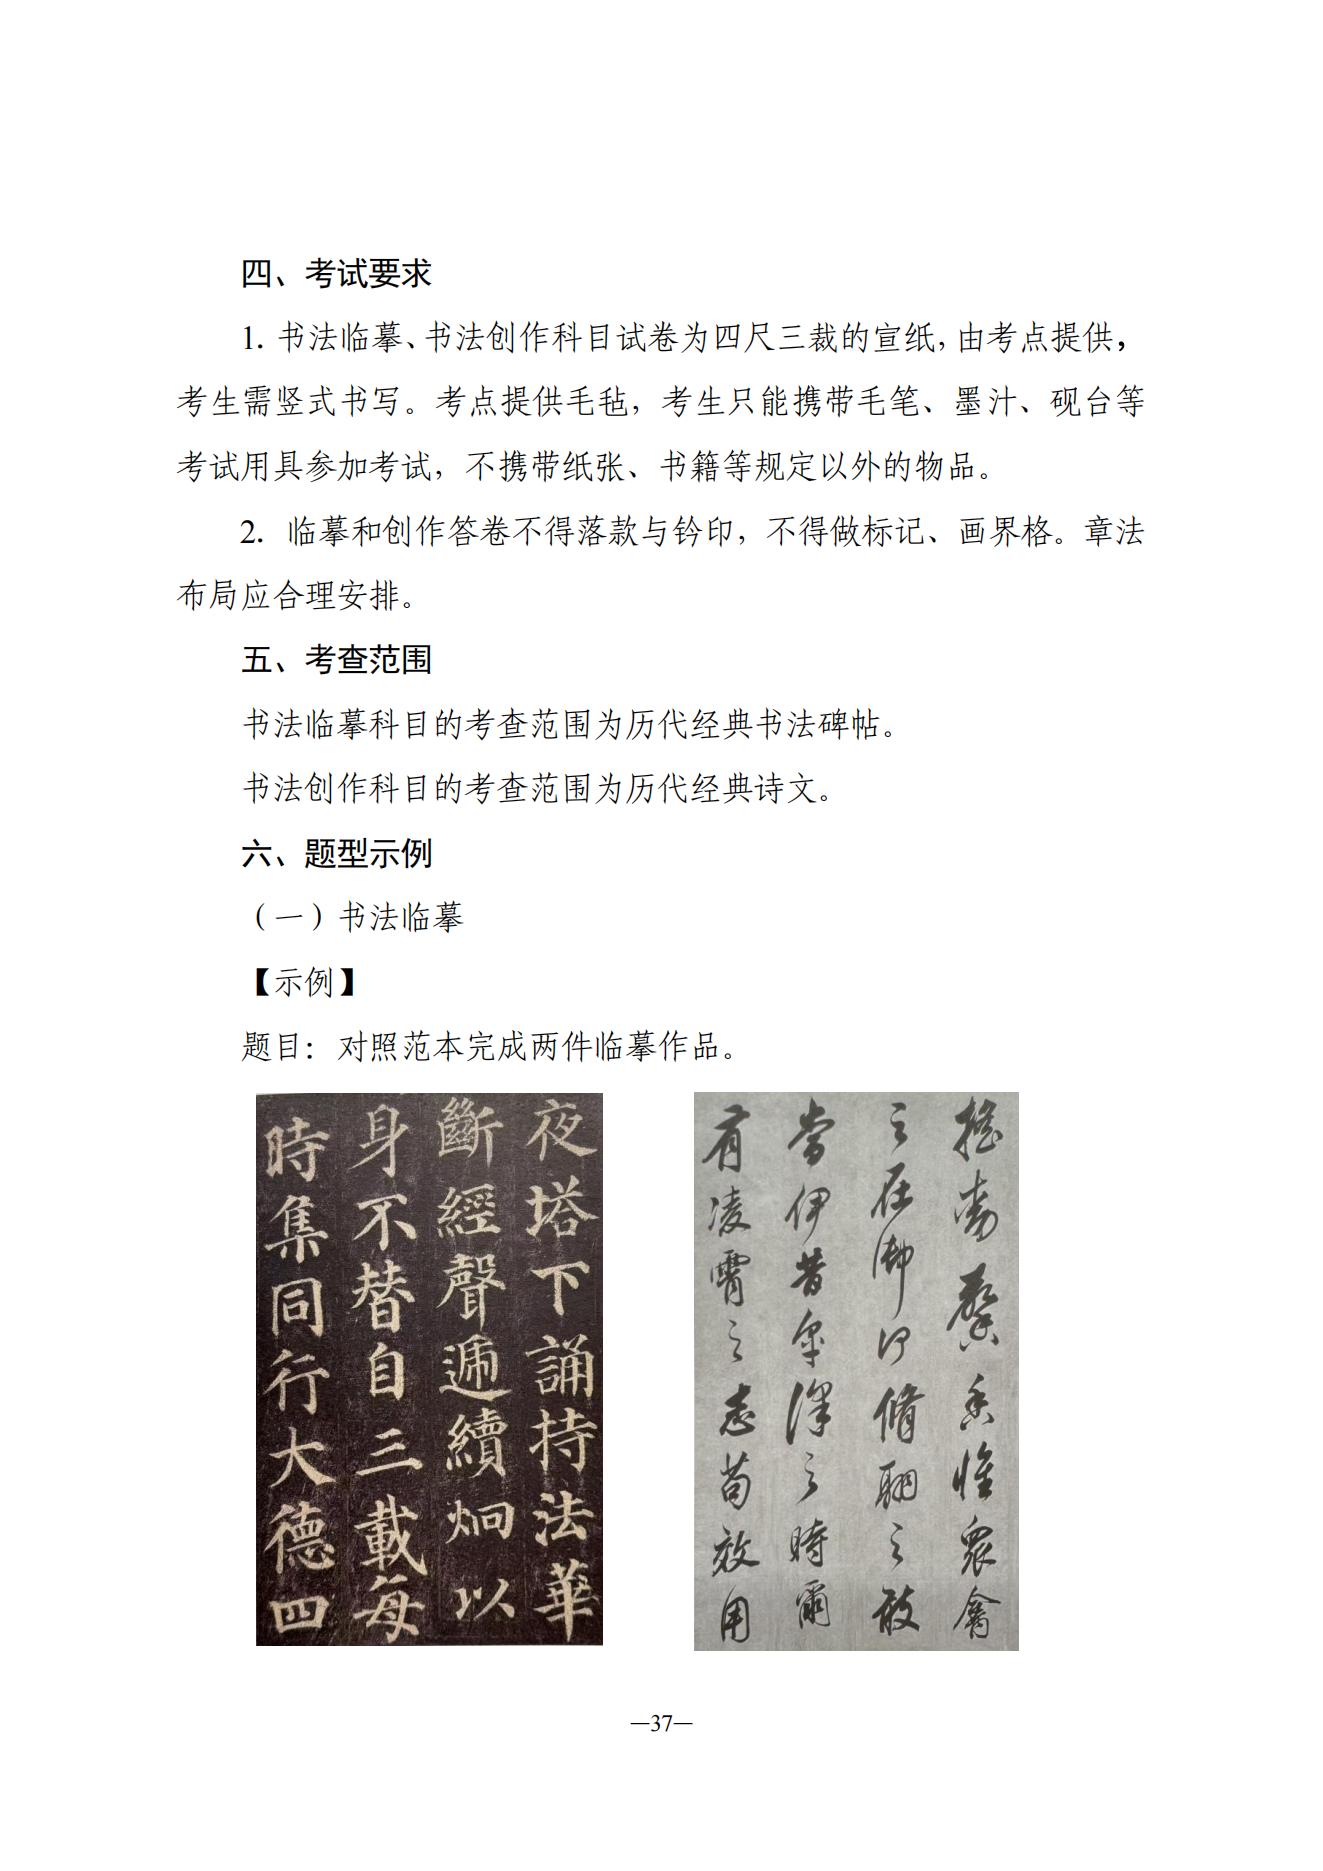 四、考试要求
1. 书法临摹、书法创作科目试卷为四尺三裁的宣纸，由考点提供，
考生需竖式书写。考点提供毛毡，考生只能携带毛笔、墨汁、砚台等
考试用具参加考试，不携带纸张、书籍等规定以外的物品。
2. 临摹和创作答卷不得落款与钤印，不得做标记、画界格。章法
布局应合理安排。
五、考查范围
书法临摹科目的考查范围为历代经典书法碑帖。
书法创作科目的考查范围为历代经典诗文。
六、题型示例
（一）书法临摹
【示例】
题目：对照范本完成两件临摹作品。
夜塔下誦持法華
斷經聲遞續炯以
身不替自三載每
時集同行大德四
馨香惟衆禽
之在御況脩翮之敢
當伊昔皐澤之時爾
有凌霄之志苟效用
—37—